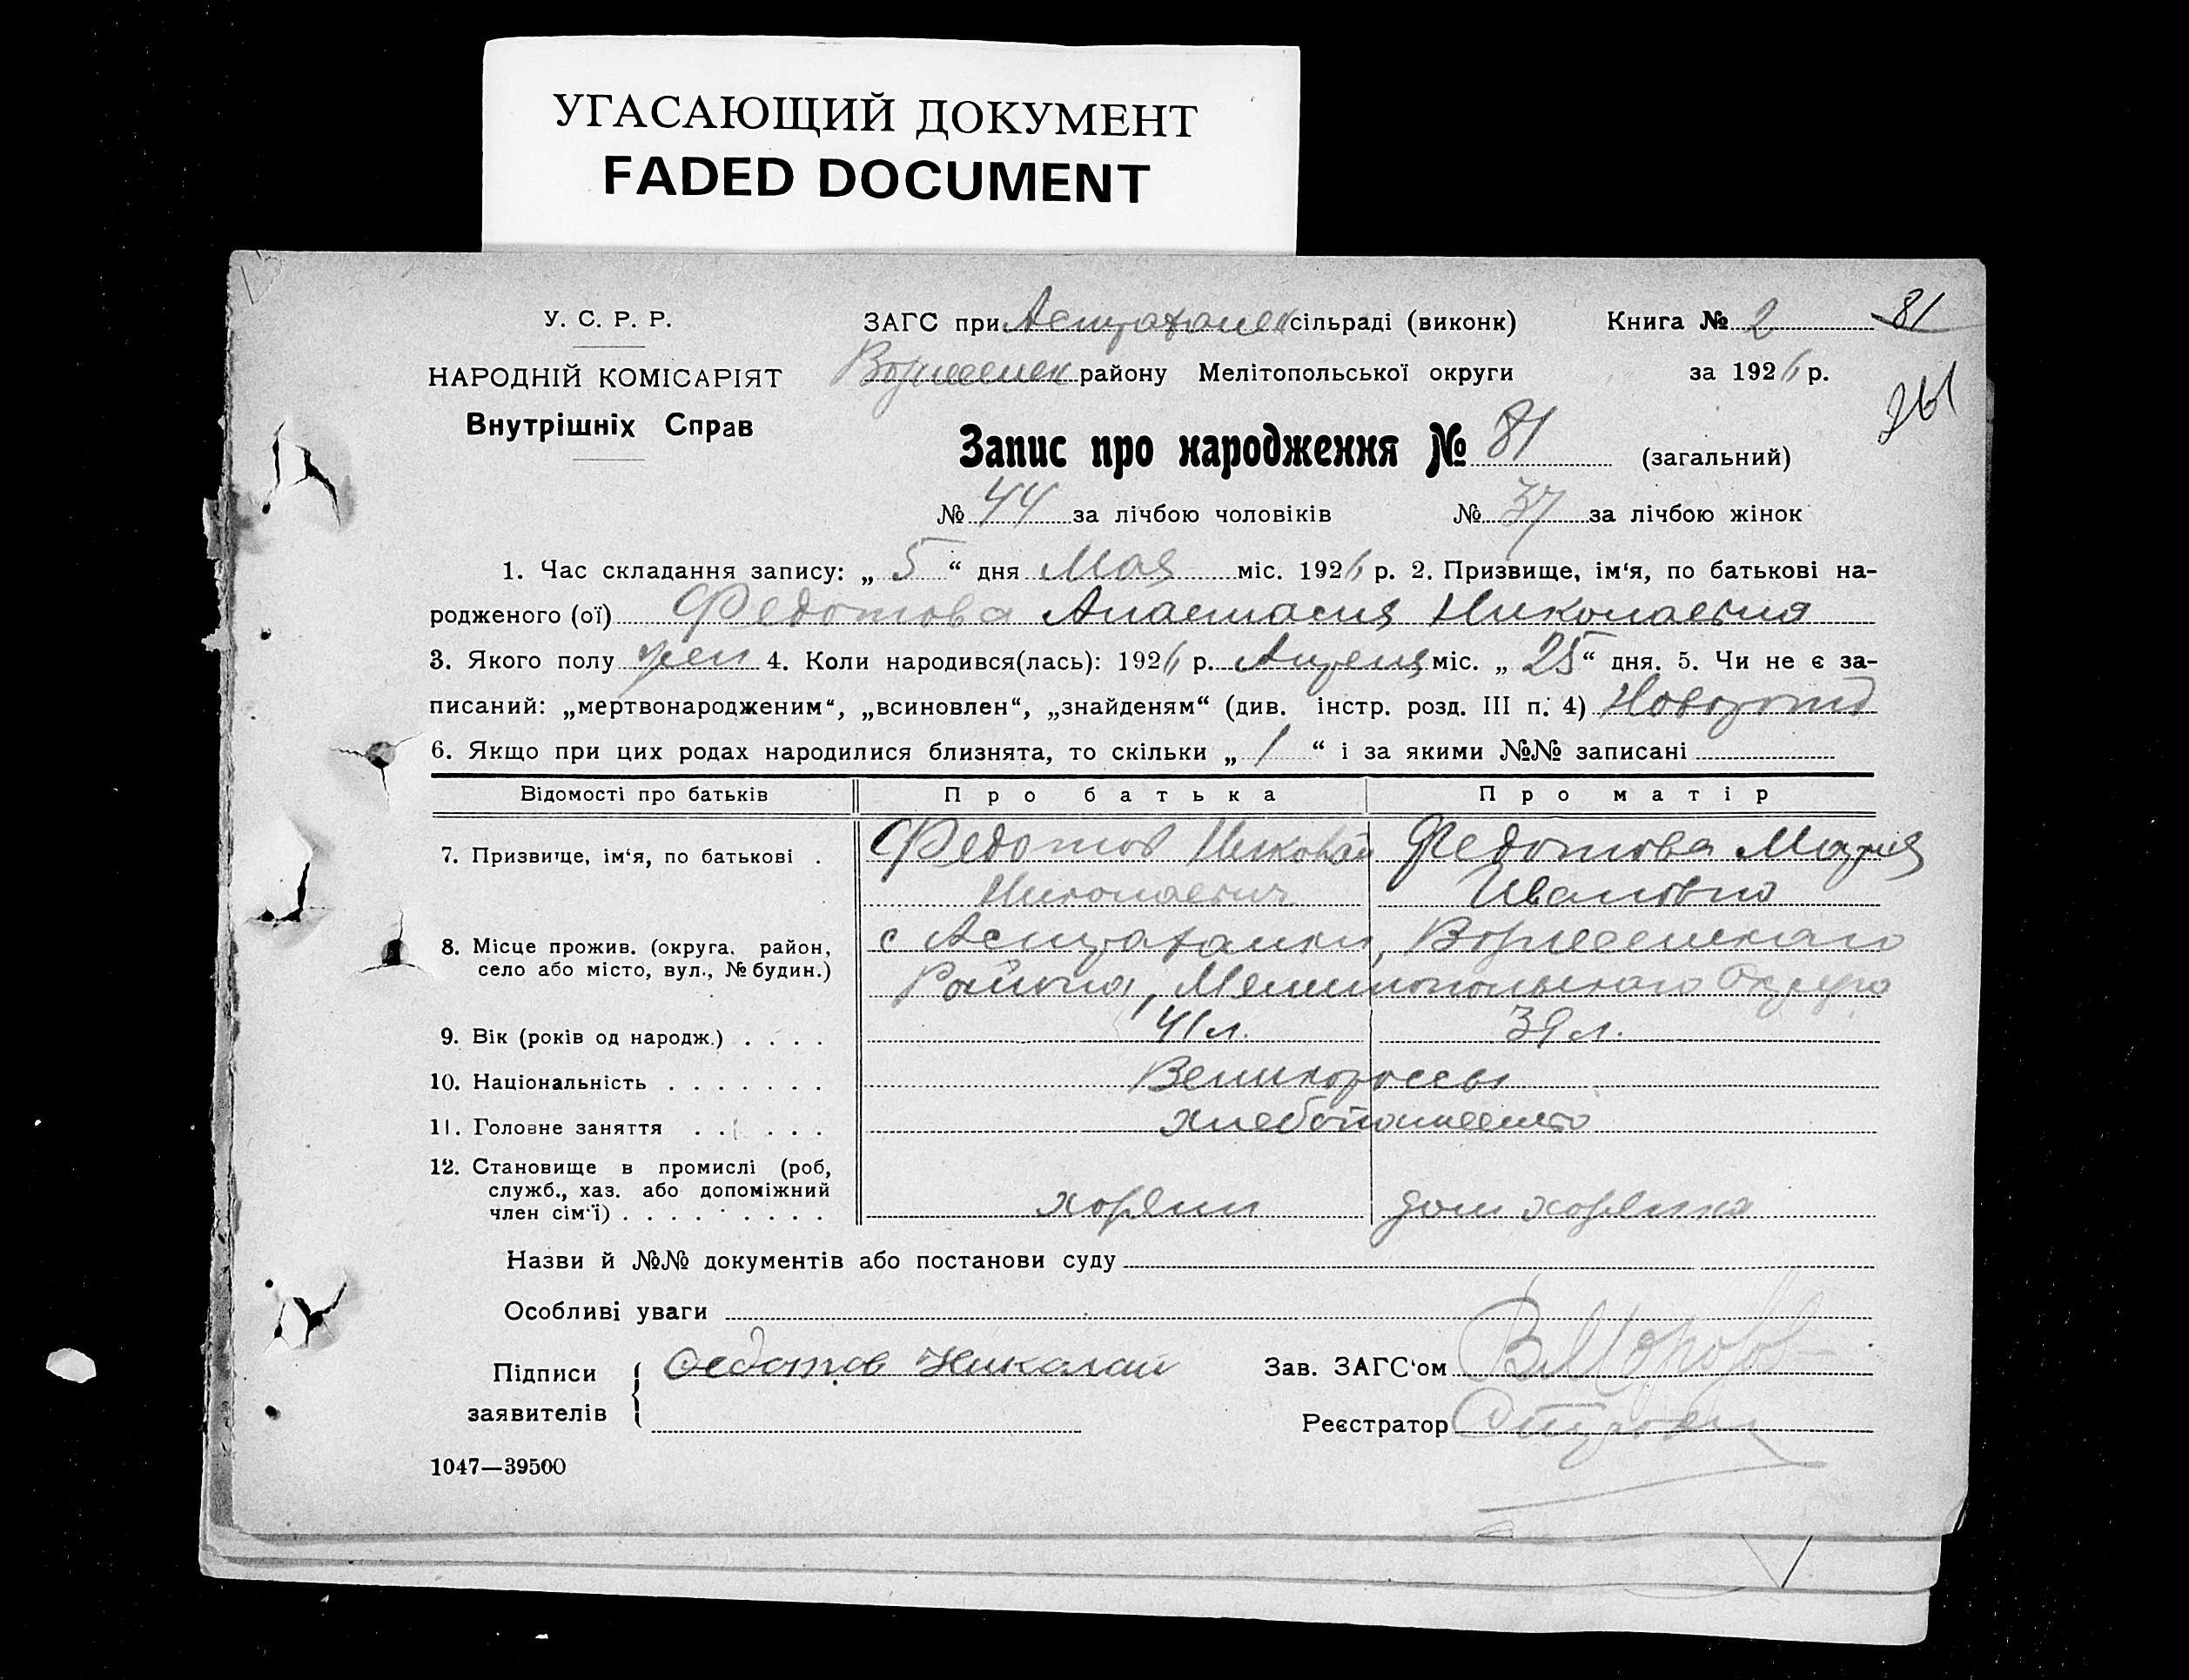 УГАСАЮЩИЙ ДОКУМЕНТ
FADED DOCUMENT
У. С. Р. Р.
НАРОДНІЙ КОМІСАРІЯТ
Внутрішніх Справ
ЗАГС при Астраханск сільраді (виконк) Книга № 2 81
Вознесенск району Мелітопольської округи за 1926 р.
261
Запис про народження № 81 (загальний)
№ 44 за лічбою чоловіків № 37 за лічбою жінок
1. Час складання запису: „ 5 “ дня Мая міс. 1926 р. 2. Призвище, ім‘я, по батькові на-
родженого (ої) Федотова Анастасия Николаевна
3. Якого полу жен 4. Коли народився(лась): 1926 р. Апреля міс. „ 25 “ дня. 5. Чи не є за-
писаний: „мертвонародженим“, „всиновлен“, „знайденям“ (див. інстр. розд. III п. 4)
6. Якщо при цих родах народилися близнята, то скільки „ 1 “ і за якими №№ записані
Відомості про батьків Про батька Про матір
7. Призвище, ім‘я, по батькові . Федотов Николай Федотова Мария
Николаевич Ивановна
8. Місце прожив. (округа, район, село або місто, вул., № будин.) с Астраханки, Вознесенскаго
Района, Мелитопольскаго Округа
9. Вік (років од народж.) . . . . 41 л. 39 л.
10. Національність . . . . . . . Великороссы
11. Головне заняття . . . . . хлебопашество
12. Становище в промислі (роб,
служб., хаз. або допоміжний
член сім‘ї) . . . . . . . . . хозяин дом хозяйка
Назви й №№ документів або постанови суду
Особливі уваги
Підписи заявителів { Федотов Николай
Зав. ЗАГС‘ом
Реєстратор
1047—39500